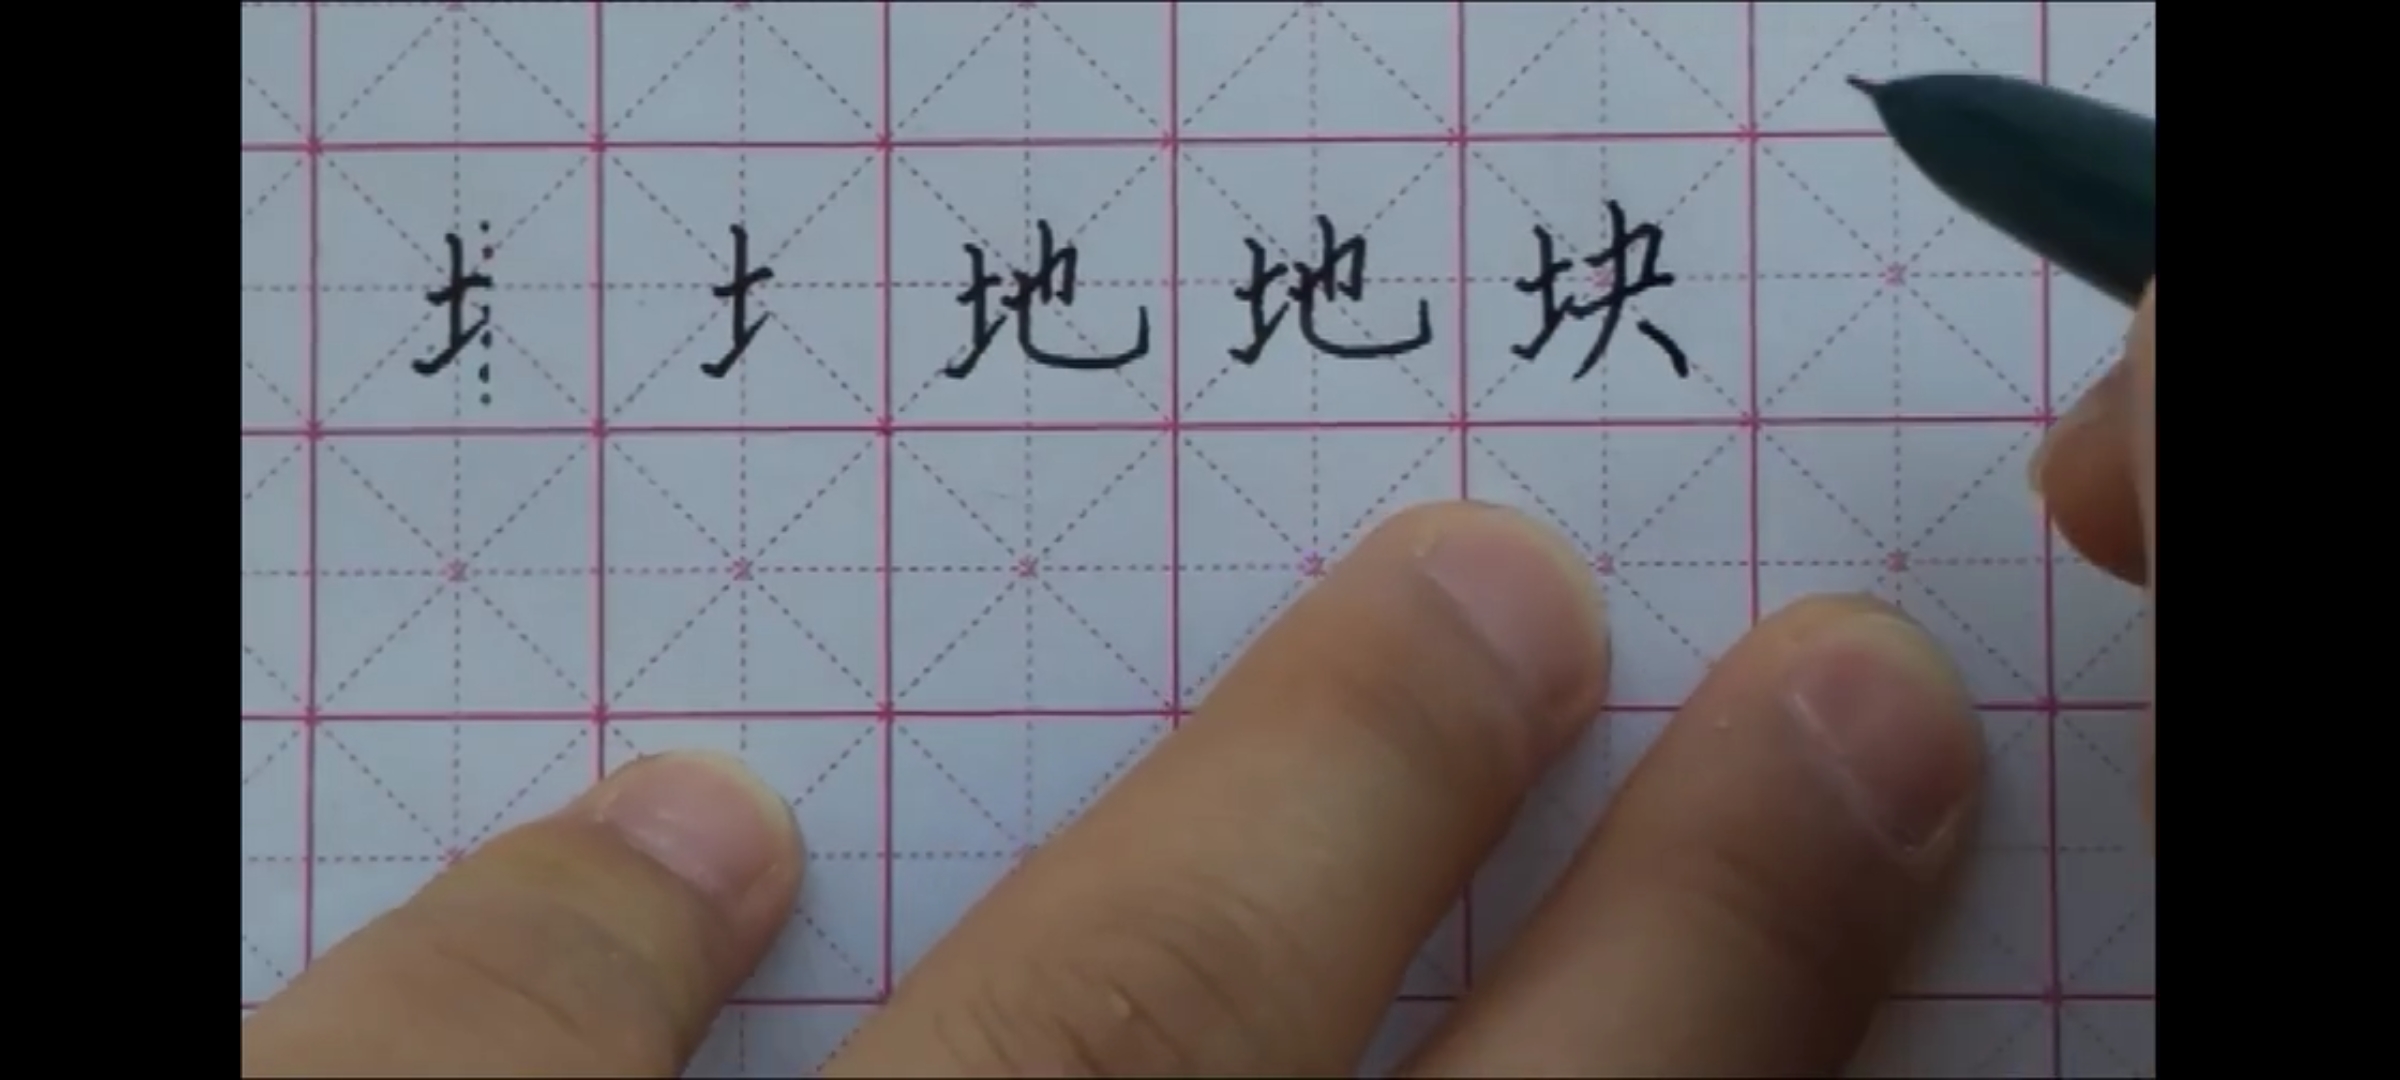 土 土 地 地 块